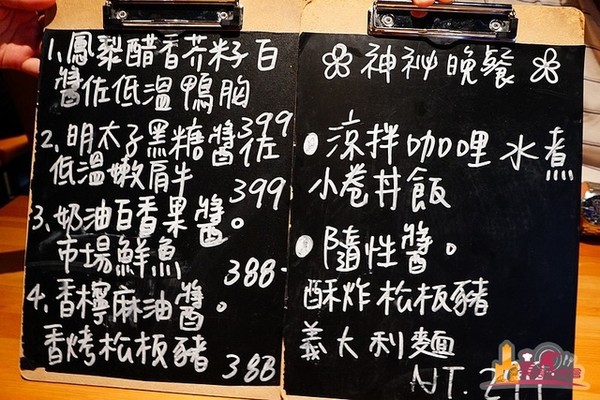 1.鳳梨醋香芥籽白
醬佐低溫鴨胸
399
2.明太子黑糖醬佐
低溫嫩肩牛
399
3.奶油百香果醬。
市場鮮魚
388.
4.香檸麻油醬。
香烤松板豬 388
神祕晚餐
涼拌咖哩水煮
小卷丼飯
隨性醬。
酥炸松板豬
義大利麵
NT.